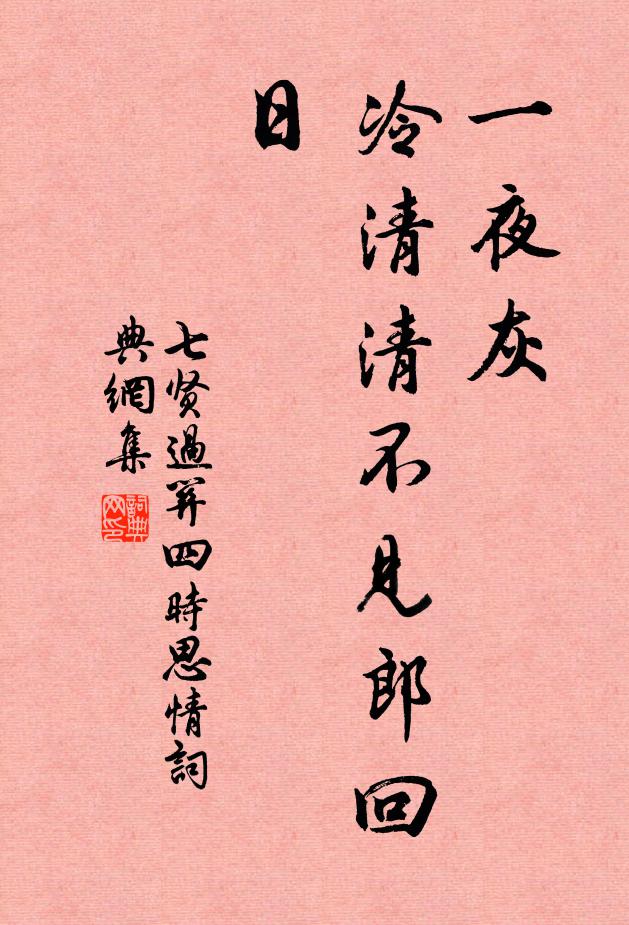 一夜灰
冷清清不見郎回
日
七贤過关四時思情詞
典網集
詞典
网印